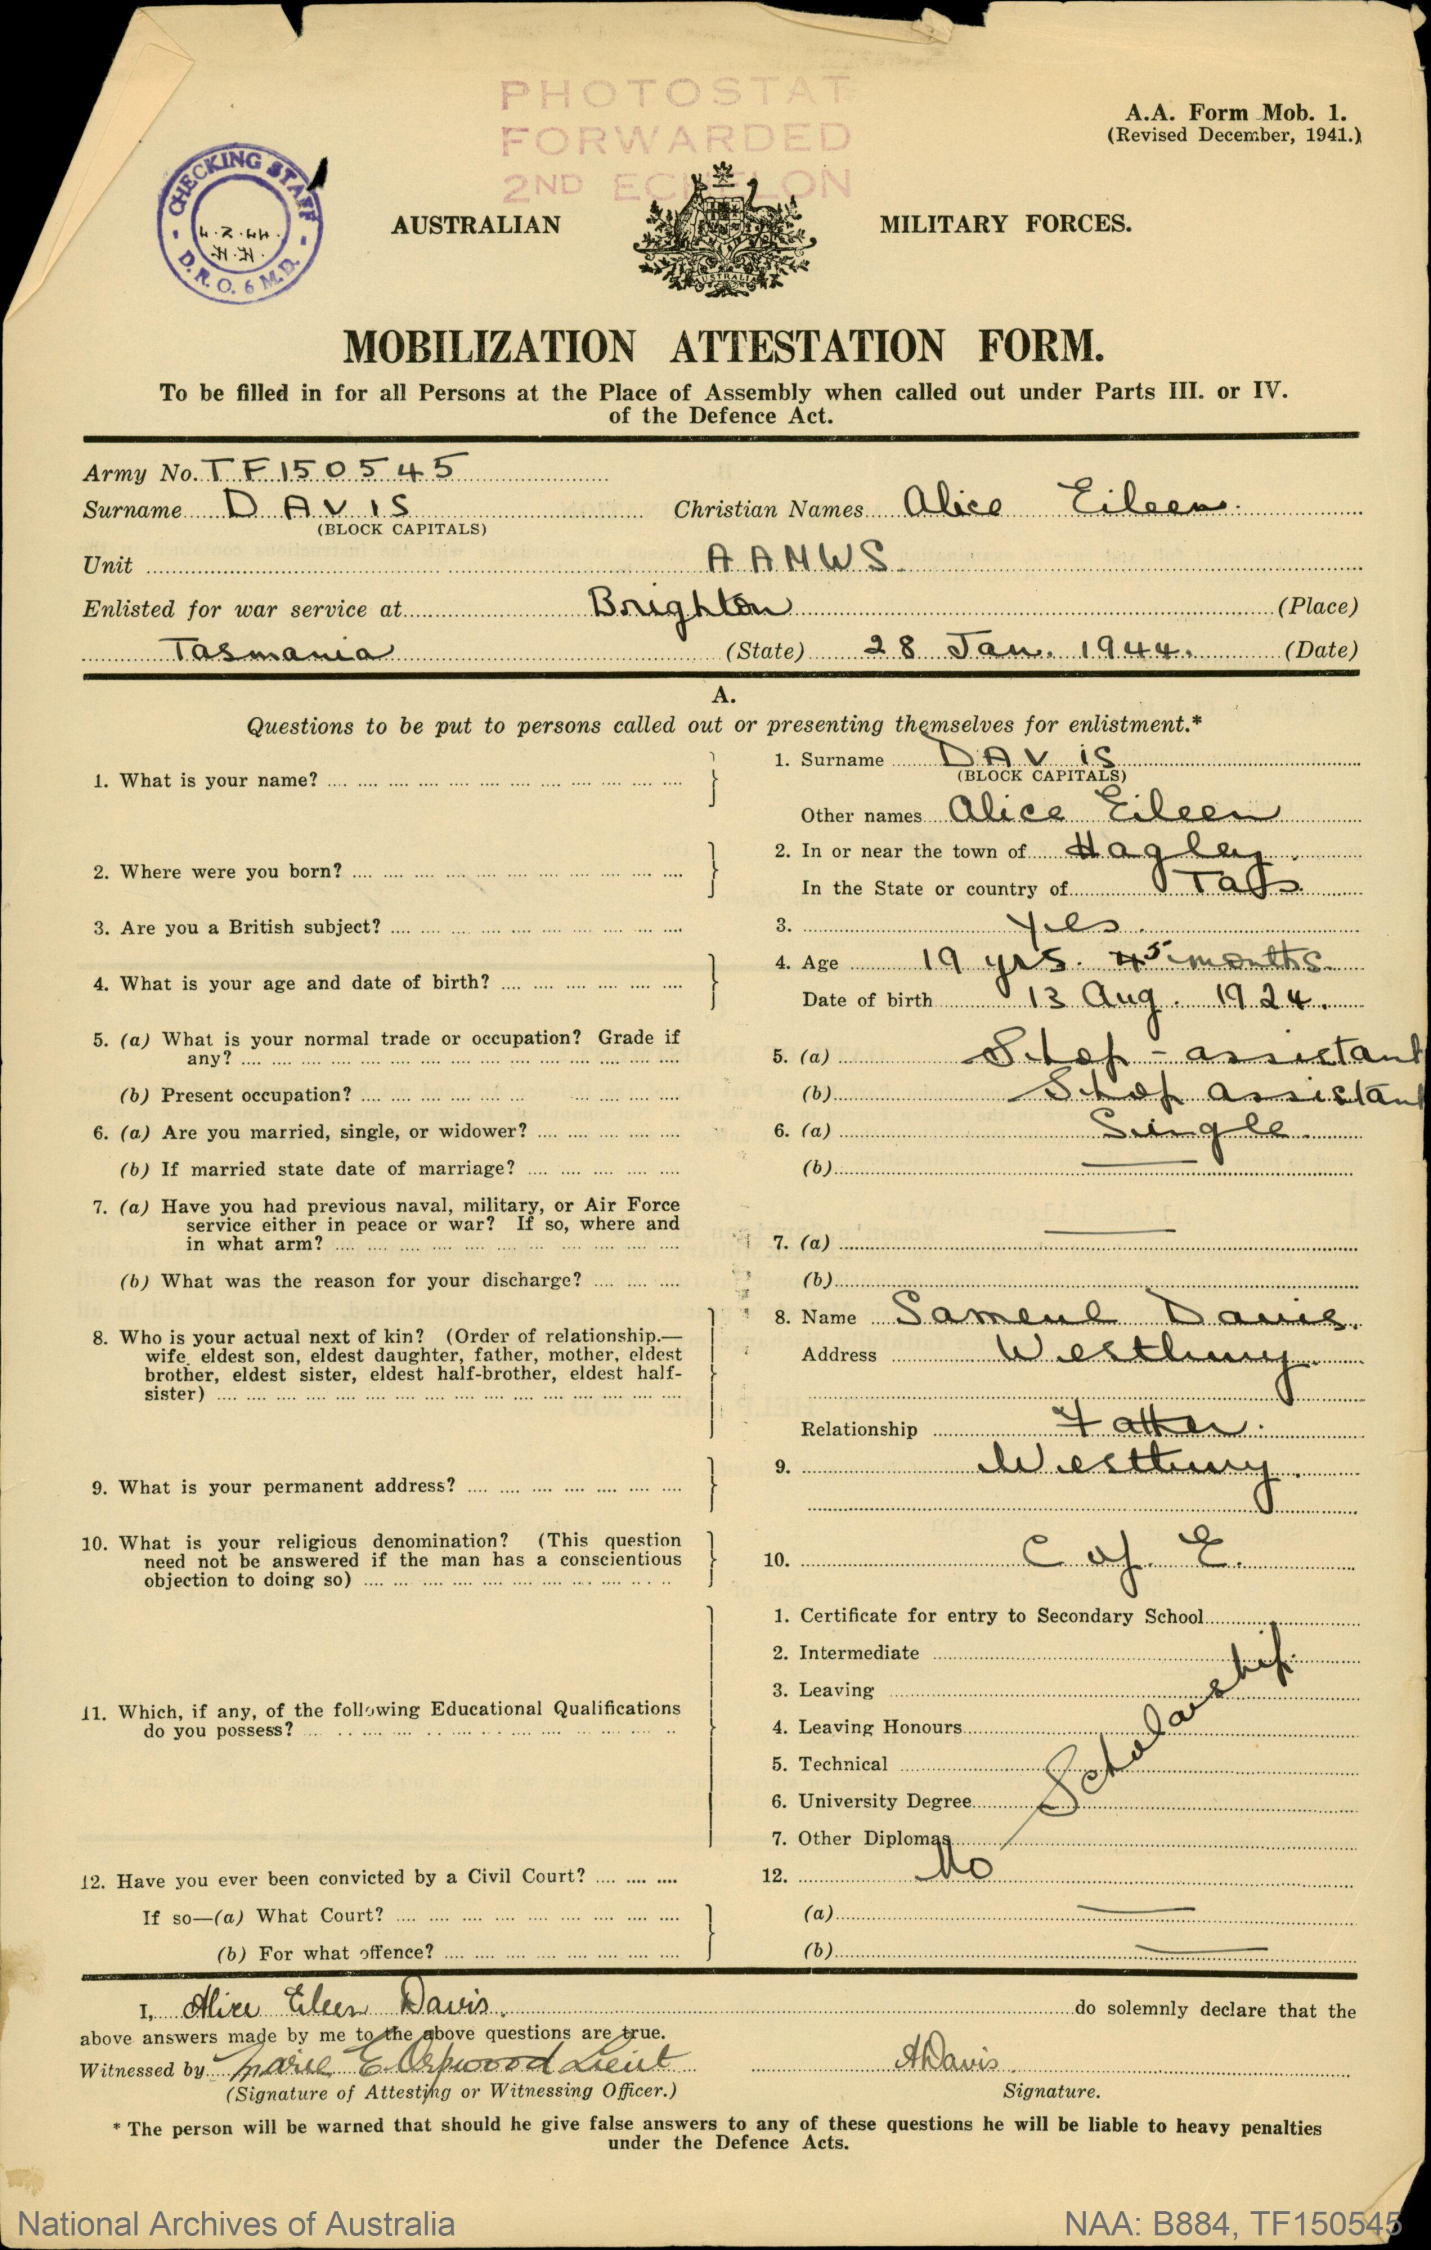 PHOTOSTAT
FORWARDED
2ND ECHELON
A.A. Form Mob. 1.
(Revised December, 1941.)
CHECKING STAFF
D.R.O. 6 M.D.
AUSTRALIAN MILITARY FORCES.
AUSTRALIA
MOBILIZATION ATTESTATION FORM.
To be filled in for all Persons at the Place of Assembly when called out under Parts III. or IV.
of the Defence Act.
Army No. TF150545
Surname DAVIS Christian Names Alice Eileen.
(BLOCK CAPITALS)
Unit AAMWS
Enlisted for war service at Brighton (Place)
Tasmania (State) 28 Jan. 1944. (Date)
A.
Questions to be put to persons called out or presenting themselves for enlistment.*
1. What is your name? 1. Surname DAVIS
(BLOCK CAPITALS)
Other names Alice Eileen
2. Where were you born? 2. In or near the town of Hagley.
In the State or country of Tas.
3. Are you a British subject? 3. Yes.
4. What is your age and date of birth? 4. Age 19 yrs. 4 5 months.
Date of birth 13 Aug. 1924.
5. (a) What is your normal trade or occupation? Grade if
any? 5. (a) Shop-assistant
(b) Present occupation? (b) Shop assistant
6. (a) Are you married, single, or widower? 6. (a) Single.
(b) If married state date of marriage? (b) —
7. (a) Have you had previous naval, military, or Air Force
service either in peace or war? If so, where and
in what arm? 7. (a) —
(b) What was the reason for your discharge? (b)
8. Who is your actual next of kin? (Order of relationship.— 8. Name Sameul Davis.
wife, eldest son, eldest daughter, father, mother, eldest Address Westbury.
brother, eldest sister, eldest half-brother, eldest half-
sister)
Relationship Father.
9. What is your permanent address? 9. Westbury.
10. What is your religious denomination? (This question
need not be answered if the man has a conscientious 10. C of. E.
objection to doing so)
1. Certificate for entry to Secondary School
2. Intermediate
3. Leaving
11. Which, if any, of the following Educational Qualifications
do you possess? 4. Leaving Honours
5. Technical
6. University Degree
7. Other Diplomas
Scholarship.
12. Have you ever been convicted by a Civil Court? 12. No
If so—(a) What Court? (a) —
(b) For what offence? (b) —
I, Alice Eileen Davis. do solemnly declare that the
above answers made by me to the above questions are true.
Witnessed by Marie E Orpwood Lieut ADavis.
(Signature of Attesting or Witnessing Officer.) Signature.
* The person will be warned that should he give false answers to any of these questions he will be liable to heavy penalties
under the Defence Acts.
National Archives of Australia NAA: B884, TF150545